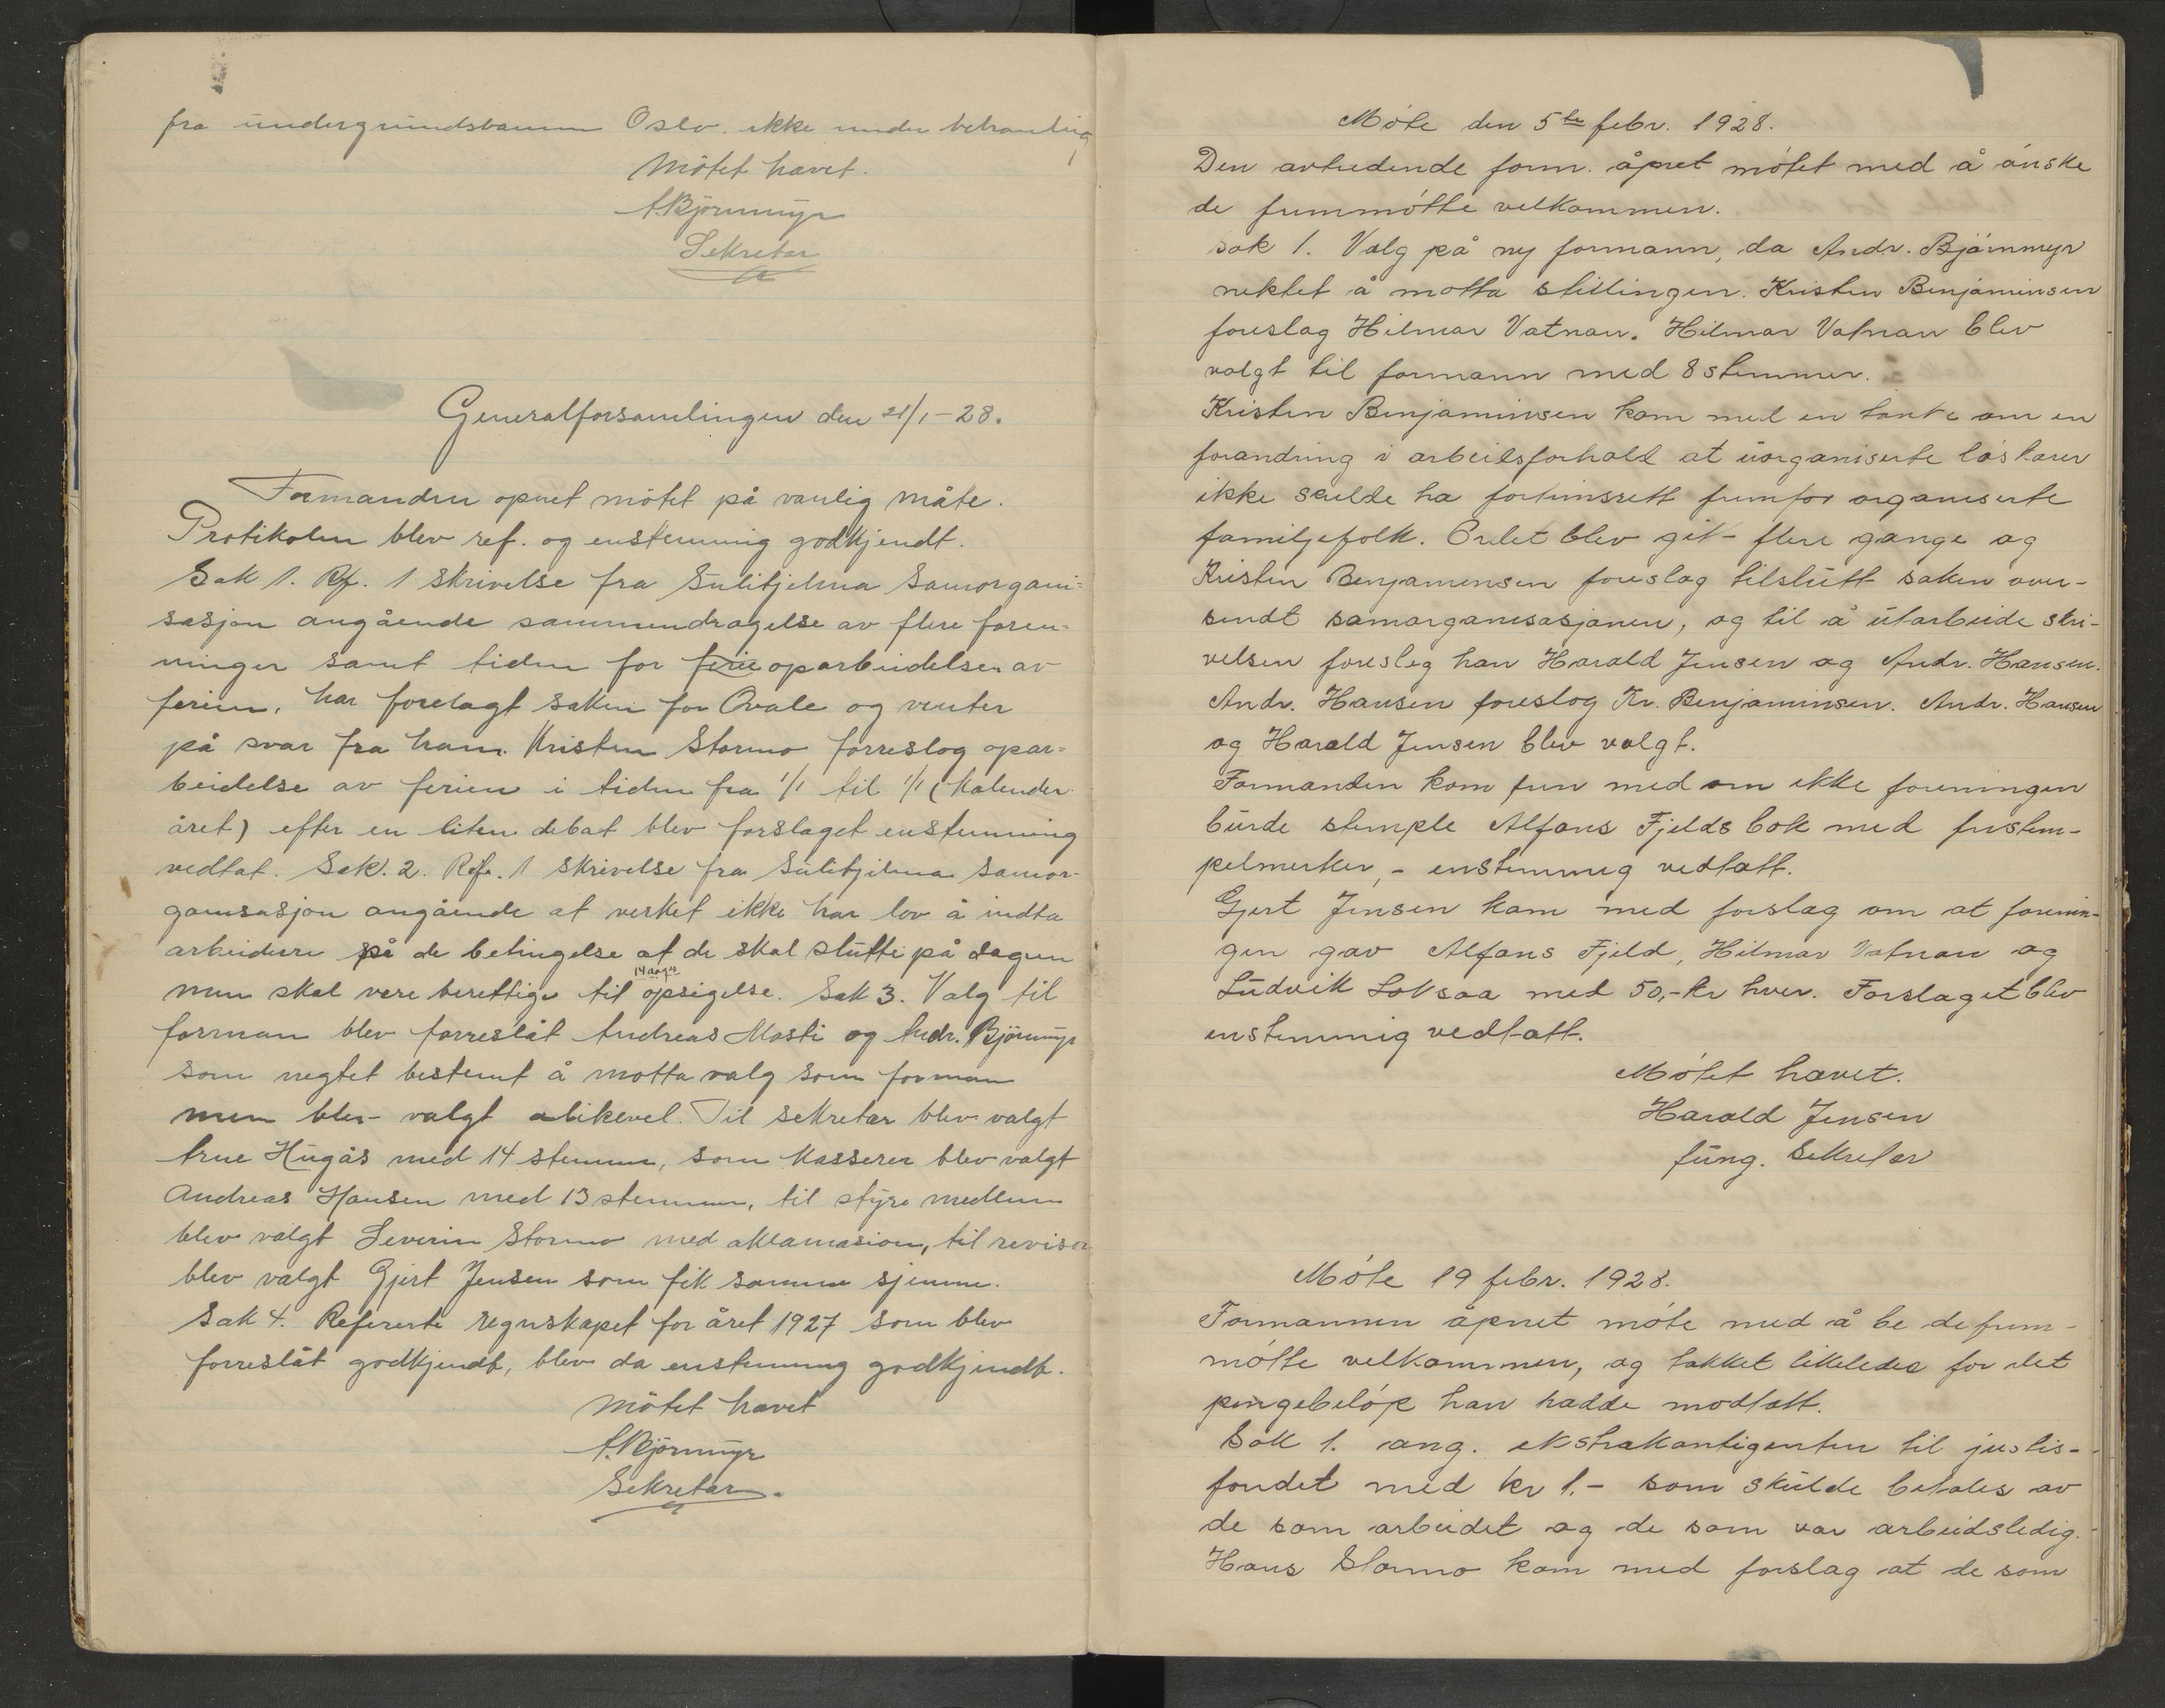 fra undergrundsbanen Oslo. ikke under behandling
Mötet hævet.
A. Björnmyr
Sekretær
Generalforsamlingen den 21/1-28.
Formanden opnet mötet på vanlig måte.
Protikolen blev ref. og enstemmig godkjendt.
Sak 1. Rf. 1 skrivelse fra Sulitjelma Samorgani=
sasjon angående sammendragelse av flere foren=
ninger samt tiden for ferie oparbeidelsen av
ferien, har forelagt saken for Ovale og venter
på svar fra ham. Kristen Stormo forreslog opar=
beidelse av ferien i tiden fra 1/1 til 1/1 (Kalender
året) efter en liten debat blev forslaget enstemmig
vedtat. Sak. 2. Ref. 1 skrivelse fra Sulitjelma Samor-
ganisasjon angående at verket ikke har lov å indta
arbeidere på de betingelse at de skal slutte på dagen
men skal være berettige til 14 dags opsigelse. Sak 3. Valg til
forman blev forreslåt Andreas Mosti og Andr. Björnmyr
som negtet bestemt å motta valg som forman
men blev valgt alikevel. Til sekretær blev valgt
Arne Hugås med 14 stemmer, som Kasserer blev valgt
Andreas Hansen med 13 stemmer, til styre medlem
blev valgt Severin Stormo med aklamasion, til revisor
blev valgt Gjert Jensen som fik samme sjemme.
Sak 4. Refererte regnskapet for året 1927 som blev
forreslåt godkjendt, blev da enstemmig godkjendt.
Mötet hævet
A. Björnmyr
Sekretær.
Möte den 5te febr. 1928.
Den avtredende form. åpnet mötet med å önske
de fremmötte velkommen.
sak 1. Valg på ny formann, da Andr. Björnmyr
nektet å motta stillingen. Kristen Benjaminsen
foreslag Hilmar Vatnan. Hilmar Vatnan blev
valgt til formann med 8 stemmer.
Kristen Benjaminsen kom med en tanke om en
forandring i arbeidsforhold at uorganiserte löskarer
ikke skulde ha fortrinsrett fremfor organiserte
familjefolk. Ordet blev git flere gange og
Kristen Benjamensen foreslog tilslutt saken over-
sendt samorganisasjonen, og til å utarbeide skri-
velsen foreslog han Harald Jensen og Andr. Hansen.
Andr. Hansen foreslog Kr. Benjaminsen. Andr. Hansen
og Harald Jensen blev valgt.
Formanden kom frem med om ikke foreningen
burde stemple Alfons Fjelds bok med fristem-
pelmerker, - enstemmig vedtatt.
Gjert Jensen kom med forslag om at forenin-
gen gav Alfons Fjeld, Hilmar Vatnan og
Ludvik Loksaa med 50,- kr hver. Forslaget blev
enstemmig vedtatt.
Mötet hævet.
Harald Jensen
fung. Sekretær
Möte 19 febr. 1928.
Formannen åpnet möte med å be de frem-
mötte velkommen, og takket likeledes for det
pengebelöp han hadde modtatt.
Sak 1. ang. ekstrakontigenten til justis-
fondet med kr 1.- som skulde betales av
de som arbeidet og de som var arbeidsledig.
Hans Stormo kom med forslag at de som